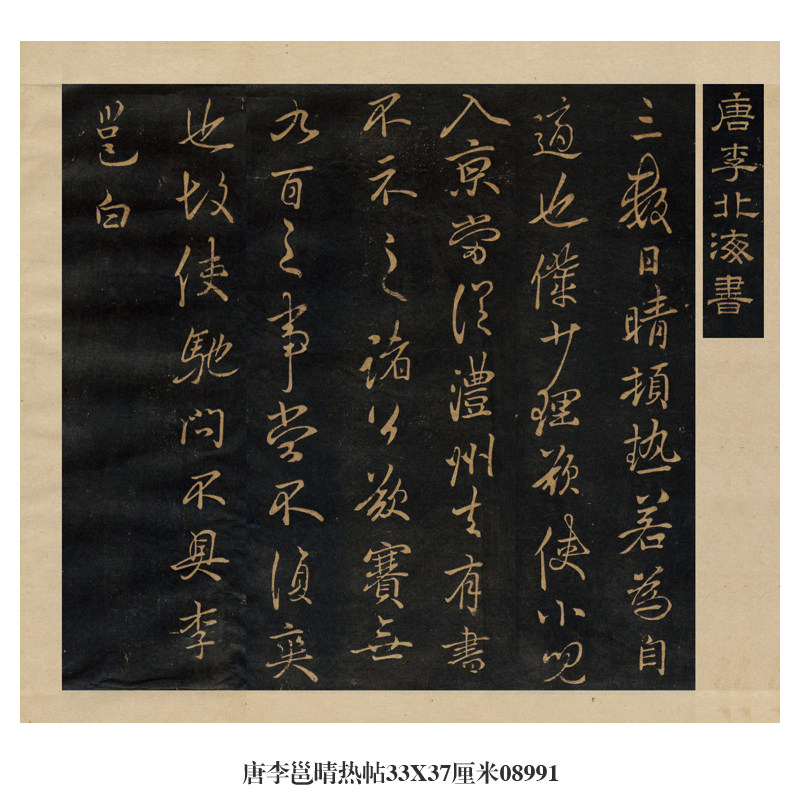 唐李北海書
三數日晴頓热若為自
適也僕少理欲使小兒
入京當從澧州去有書
不示之諸公欲賽無
九百之事當不復奕
也故使馳問不具李
邕白
唐李邕晴热帖33X37厘米08991